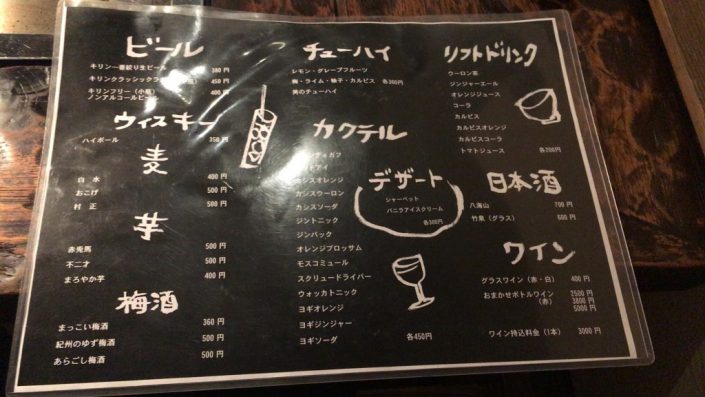 ビール
キリン一番絞り生ビール 380円
キリンクラシックラガー 450円
キリンフリー（小瓶） 400円
ノンアルコールビール
ウィスキー
ハイボール 350円
麦
白水 400円
おこげ 500円
村正 500円
芋
赤兎馬 500円
不二才 500円
まろやか芋 400円
梅酒
まっこい梅酒 360円
紀州のゆず梅酒 500円
あらごし梅酒 500円
チューハイ
レモン・グレープフルーツ
梅・ライム・柚子・カルピス 各360円
男のチューハイ
カクテル
シャンディガフ
カシスオレンジ
カシスウーロン
カシスソーダ
ジントニック
ジンバック
オレンジブロッサム
モスコミュール
スクリュードライバー
ウォッカトニック
ヨギオレンジ
ヨギジンジャー
ヨギソーダ 各450円
デザート
シャーベット
バニラアイスクリーム
各300円
ソフトドリンク
ウーロン茶
ジンジャーエール
オレンジジュース
コーラ
カルピス
カルピスオレンジ
カルピスコーラ
トマトジュース 各200円
日本酒
八海山 700円
竹泉（グラス） 600円
ワイン
グラスワイン（赤・白） 400円
おまかせボトルワイン 2500円
（赤） 3800円
5000円
ワイン持込料金（1本） 3000円